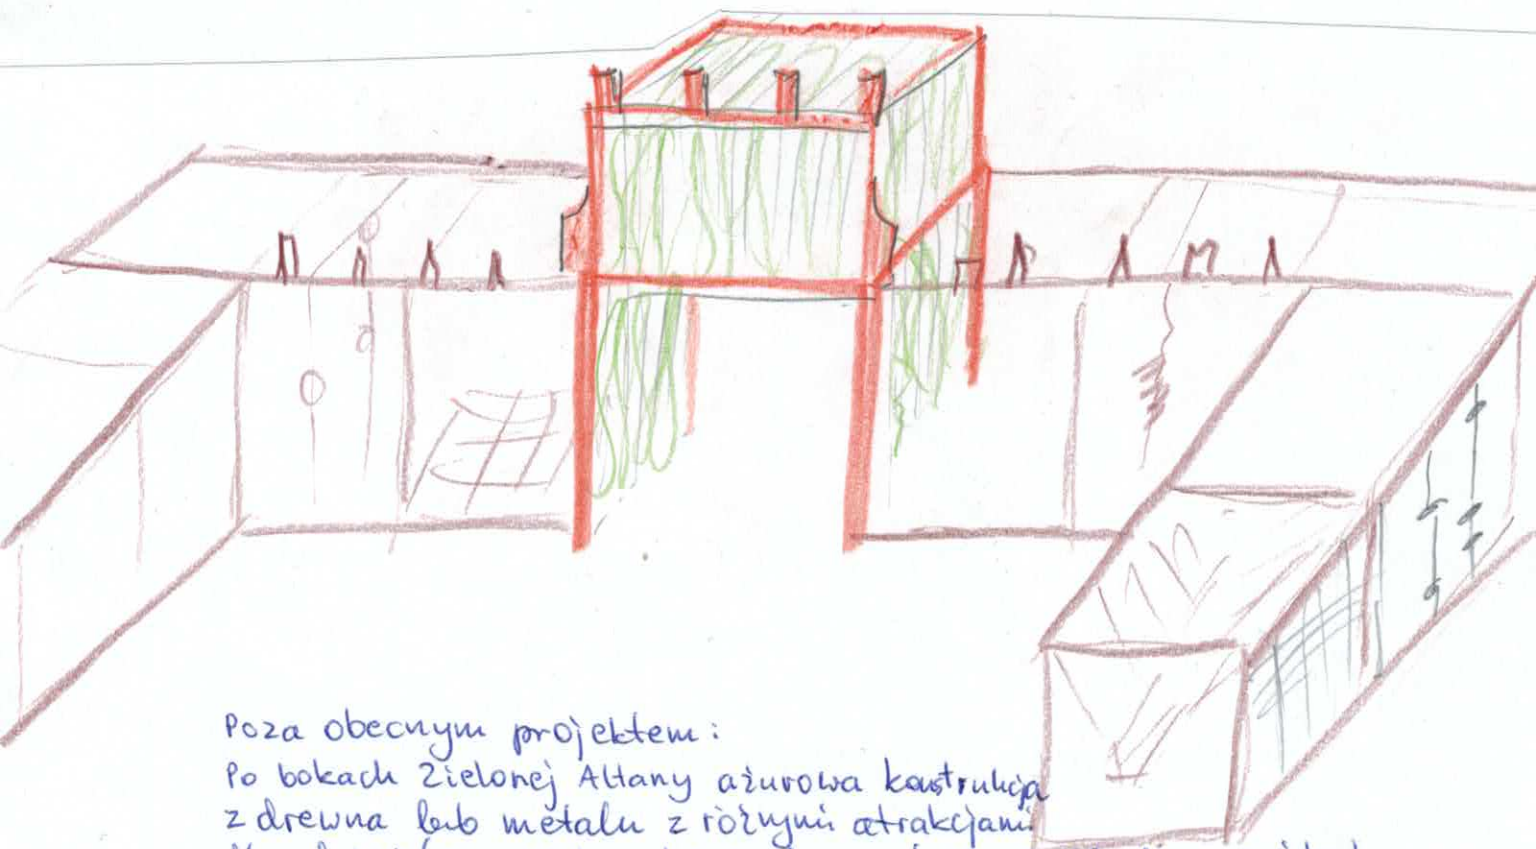 Poza obecnym projektem:
Po bokach Zielonej Altany ażurowa konstrukcja
z drewna lub metalu z różnymi atrakcjami